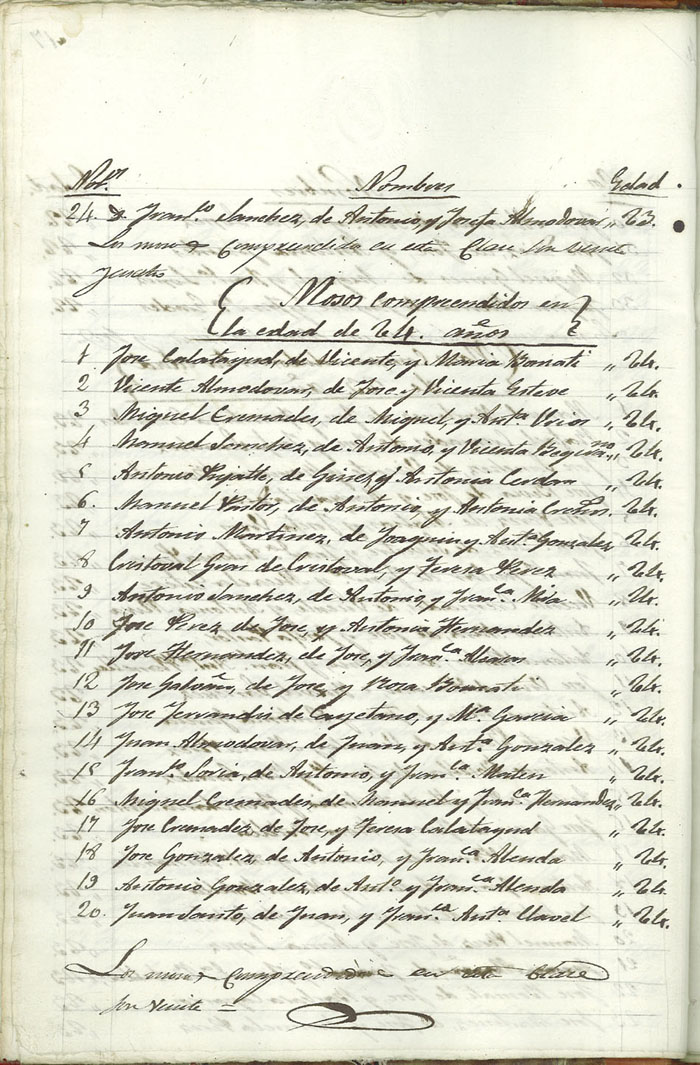 Nos. Nombres Edad
24. Franco Sanchez, de Antonio, y Josefa Almodovar " 23.
Los comprendidos en esta Clase son veinte
y cuatro
Mosos compreendidos en
la edad de 24. años
1 Jose Calatayud, de Vicente, y Maria Bonati " 24.
2 Vicente Almodovar, de Jose y Vicenta Esteve " 24.
3 Miguel Cremades, de Miguel, y Anta " 24.
4 Manuel Sanchez, de Antonio, y Vicenta " 24.
5 Antonio de Ginez y Antonia Cerdan " 24
6. Manuel Pastor, de Antonio, y Antonia 24.
7 Antonio Martinez, de Joaquin y Anta Gonzalez 24.
8 Cristoval Gran de Cristoval, y Teresa Perez " 24.
9 Antonio Sanchez, de Antonio, y Franca Mira " 24.
10 Jose Perez de Jose, y Antonia Hernandez " 24.
11 Jose Hernandez, de Jose, y Franca " 24.
12 Jose Galvañ, de Jose, y Rosa Bonati " 24.
13 Jose Ferrandis de Cayetano, y Ma Garcia " 24.
14 Juan Almodovar, de Juan, y Anta Gonzalez " 24.
15 Franco Soria, de Antonio, y Franca " 24.
16 Miguel Cremades, de Manuel y Franca Hernandez " 24.
17 Jose Cremadez de Jose, y Teresa Calatayud " 24.
18 Jose Gonzalez, de Antonio, y Franca Alenda " 24.
19 Antonio Gonzalez, de Anto y Franca Alenda " 24.
20. Juan Santo, de Juan, y Anta Clavel " 24.
Los en esta Clase
son veinte =